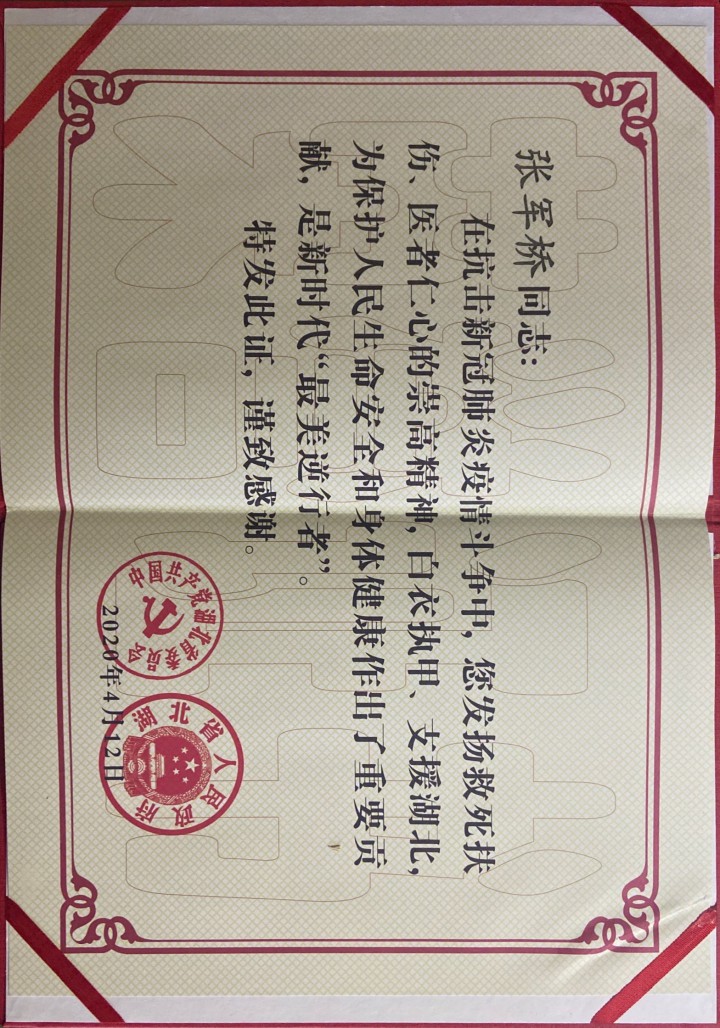 张军桥同志：
在抗击新冠肺炎疫情斗争中，您发扬救死扶
伤、医者仁心的崇高精神，白衣执甲、支援湖北，
为保护人民生命安全和身体健康作出了重要贡
献，是新时代“最美逆行者”。
特发此证，谨致感谢。
中国共产党湖北省委员会
湖北省人民政府
2020年4月12日